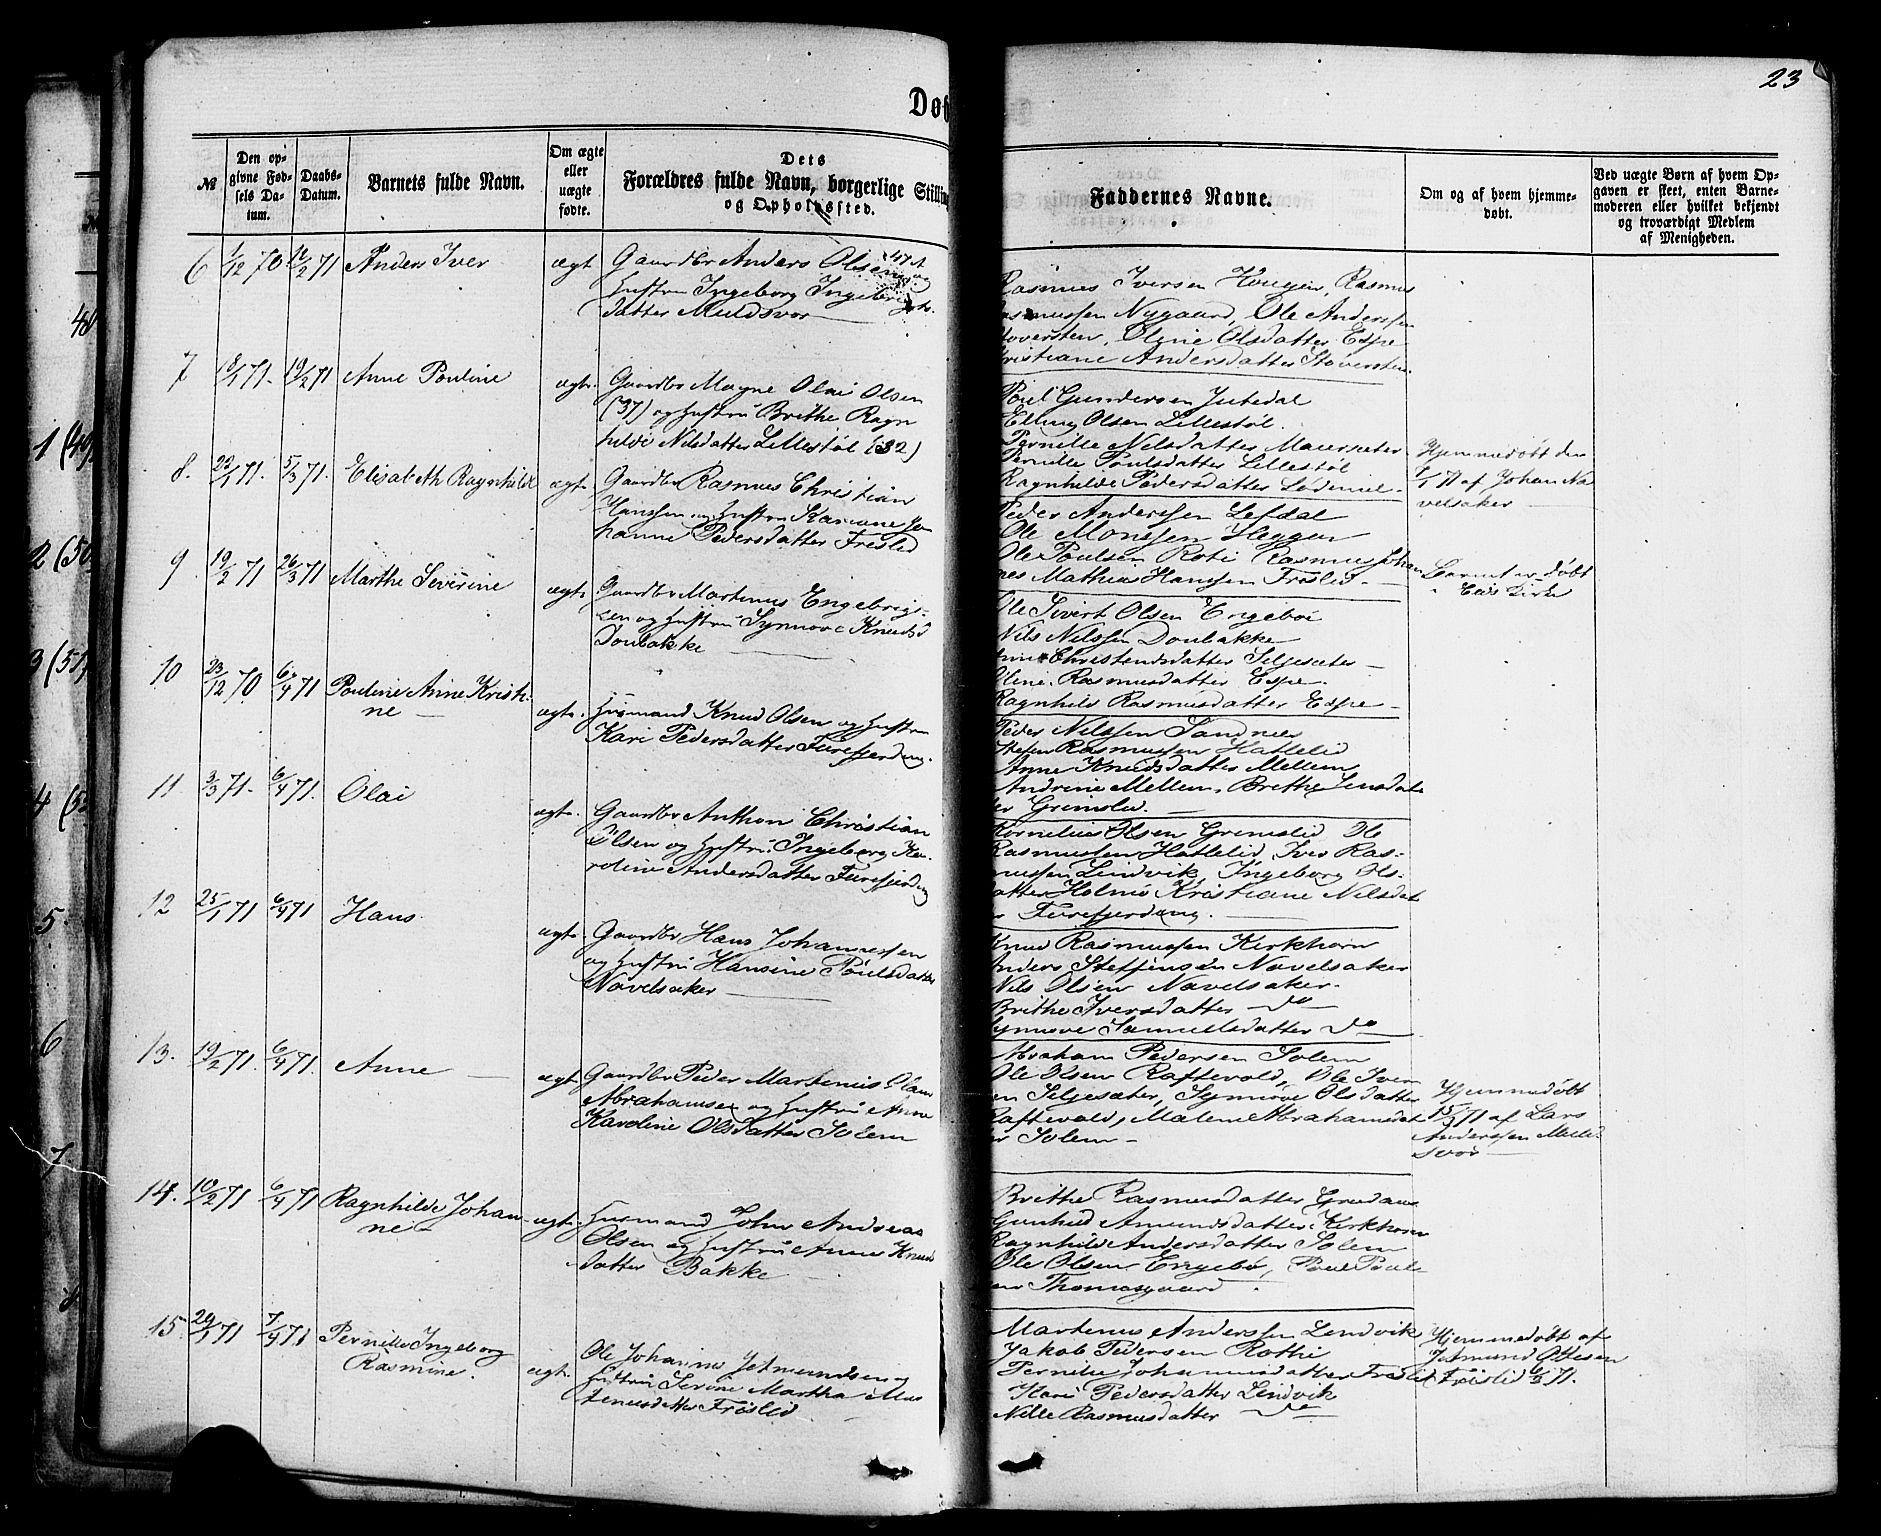 23
Døb
№
Den op-
givne Fød-
sels Da-
tum.
Daabs-
Datum.
Barnets fulde Navn.
Om ægte
eller
uægte
fødte.
Dets
Forældres fulde Navn, borgerlige Stilling
og Opholdssted.
Faddernes Navne.
Om og af hvem hjemme-
døbt.
Ved uægte Børn af hvem Op-
gaven er skeet, enten Barne-
moderen eller hvilket bekjendt
og troværdigt Medlem
af Menigheden.
6 1/12 70 12/2 71 Anders Iver ægt
Gaardbr Anders Olsen og
Hustru Ingeborg Ingebrigts
datter Muldsvor
Rasmus Iversen Haugen, Rasmus
Rasmussen Nygaard, Ole Anderssen
Stoversten, Oline Olsdatter Espe
Kristiane Andersdatter Stoversten
7 18/1 71 19/2 71 Anne Pouline ægt.
Gaardbr Magne Olai Olsen
(37) og Hustru Brithe Ragn
hilde Nilsdatter Lillestøl (32)
Poul Gundersen Jutedal
Elling Olsen Lillestøl.
Pernille Nilsdatter Maurseter
Pernille Poulsdatter Lillestøl
Ragnhilde Pedersdatter Lødemel
8. 22/1 71. 5/3 71. Elisabeth Ragnhilde ægt.
Gaardbr Rasmus Christian
Hanssen og Hustru Kariane Jo
hanne Pedersdatter Frislid
Peder Anderssen Lefdal
Ole Monssen Heggen
Ole Poulsen Roti Rasmus Johan
nes Mathias Hanssen Frøslid
Hjemmedøbt den
71 af Johan Na
velsaker
9 19/2 71 26/3 71 Marthe Severine ægt.
Gaardbr Martinus Engebrigt-
sen og Hustru Synnove Knudsd
Doubakke
Ole Sivert Olsen Engebøe
Nils Nilssen Doubakke
Anne Christensdatter Seljesæter
Oline Rasmusdatter Espe.
Ragnhild Rasmusdatter Espe
Barnet er døbt
Eids Kirke
10 23/12 70 6/4 71 Pouline Anne Kristi-
ne ægt.
Husmand Knud Olsen og Hustru
Kari Pedersdatter Furefjerdeng.
Peder Nilssen Sandnes
Steffen Rasmussen Hattelid
Anne Knudsdatter Mellem
Andrine Mellem, Brithe Jensdat
ter Grimslid.
11 3/3 71. 6/4 71. Olai ægt.
Gaardbr Anthon Christian
Olsen og Hustru Ingeborg Ka-
roline Andersdatter Furefjerdeng
Kornelius Olsen Grimslid Ole
Rasmussen Hattelid, Iver Ras-
mussen Lindvik, Ingeborg Ols-
datter Holmø Kristiane Nilsdat
ter Furefjerdeng.
12 25/1 71 6/4 71 Hans ægt.
Gaardbr Hans Johannessen
og Hustru Hansine Poulsdatter
Navelsaker
Knud Rasmussen Kirkhorn
Anders Steffensen Navelsaker
Nils Olsen Navelsaker.
Brithe Iversdatter Do
Synnøve Samuelsdatter Do
13. 19/2 71. 6/4 71. Anne ægt.
Gaardbr Peder Martinus Olaus
Abrahamsen og Hustru Anne
Karoline Olsdatter Solem
Abraham Pedersen Solem
Ole Olsen Raftevold, Ole Iver
sen Seljesæter, Synnøve Olsdatter
Raftevold, Malene Abrahamsdat
ter Solem
Hjemmedøbt
71 af Lars
Anderssen Mulds-
vor
14. 10/2 71 6/4 71 Ragnhilde Johan-
ne ægt.
Husmand John Andreas
Olsen og Hustru Anne Knuds
datter Bakke
Brithe Rasmusdatter Grudaus
Gunhild Amundsdatter Kirkhorn
Ragnhilde Andersdatter Solem
Ole Olsen Engebø, Poul Poul-
sen Thomasgaard.
15. 29/1 71 7/4 71 Pernille Ingeborg
Rasmine. ægt.
Ole Johannes Jetmundsen og
Hustru Serine Martha Mar
tinusdatter Frøslid
Martinus Anderssen Lindvik
Jakob Pedersen Rothi
Pernille Johannesdatter Frøslid
Kari Pedersdatter Lindvik
Nille Rasmusdatter Do
Hjemmedøbt af
Jetmund Ottesen
Frøslid 71.
48
1 (49
2 (50
3 (51
4 (52
5.
6
7.
8